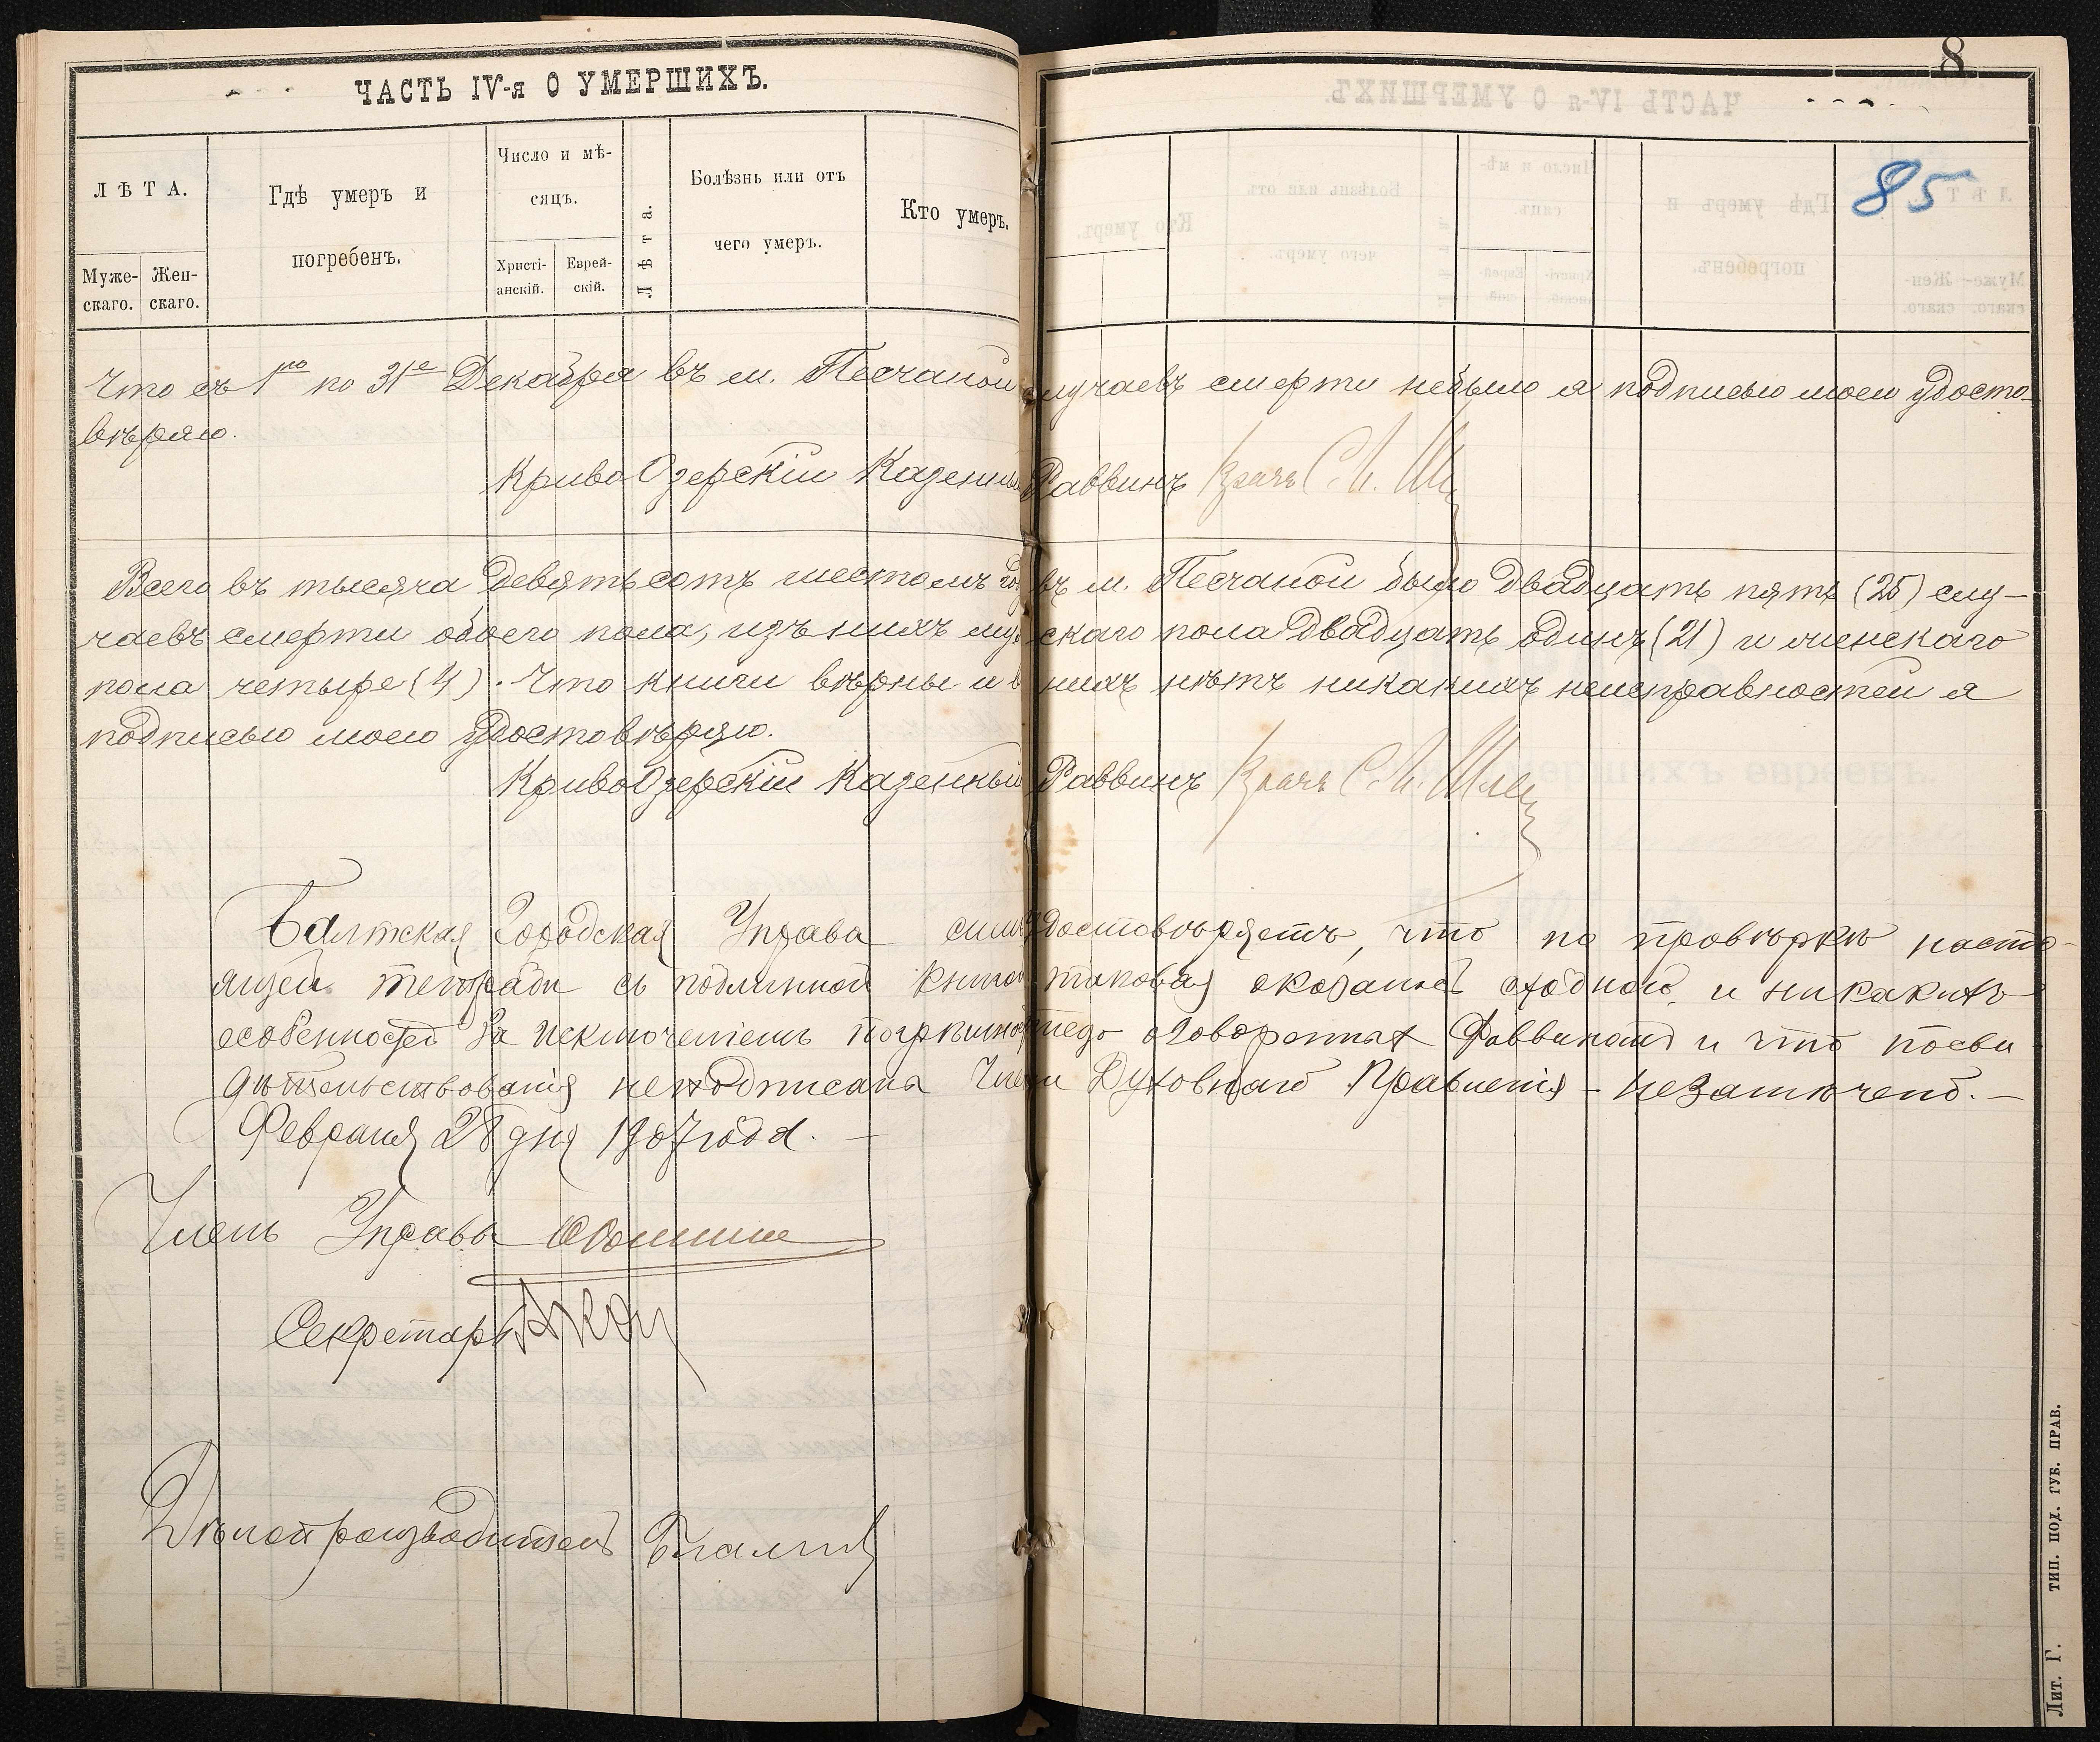 ЧАСТЬ IV-я О УМЕРШИХЪ.
8
85
ЛѢТА.
Муже-скаго.
Жен-скаго.
Гдѣ умеръ и погребенъ.
Число и мѣ-сяцъ.
Христі-анскій.
Еврей-скій.
Лѣта.
Болѣзнь или отъ чего умеръ.
Кто умеръ.
Что съ 1го по 31е Декабря въ м. Песчаной случаевъ смерти небыло я подписью моею удосто-
вѣряю.
Криво Озерскій Казенный Раввинъ Врачъ С. Л.
Всего въ тысяча девятьсотъ шестомъ год въ м. Песчаной было двадцать пять (25) слу-
чаевъ смерти обоего пола, изъ нихъ муж скаго пола двадцать одинъ (21) и женскаго
пола четыре (4). Что книги вѣрны и въ нихъ нѣтъ никакихъ неисправностей я
подписью моею удостовѣряю.
Криво Озерскій Казенный Раввинъ Врачъ С. Л.
Балтская Городская Управа симъ удостовѣряетъ, что по провѣркѣ насто-
ящей тетради съ подлинной книгой таковая оказалась сходною и никакихъ
особенностей за исключеніемъ погрѣшностей оговоренныхъ Раввиномъ и что посви
дѣтельствованія неподписана Члены Духовнаго Правленія - незамѣчено. —
Февраля 28 дня 1907 года. —
Членъ Управы
Секретарь
Дѣлопроизводитель
Лит. Г. ТИП. ПОД. ГУБ. ПРАВ.